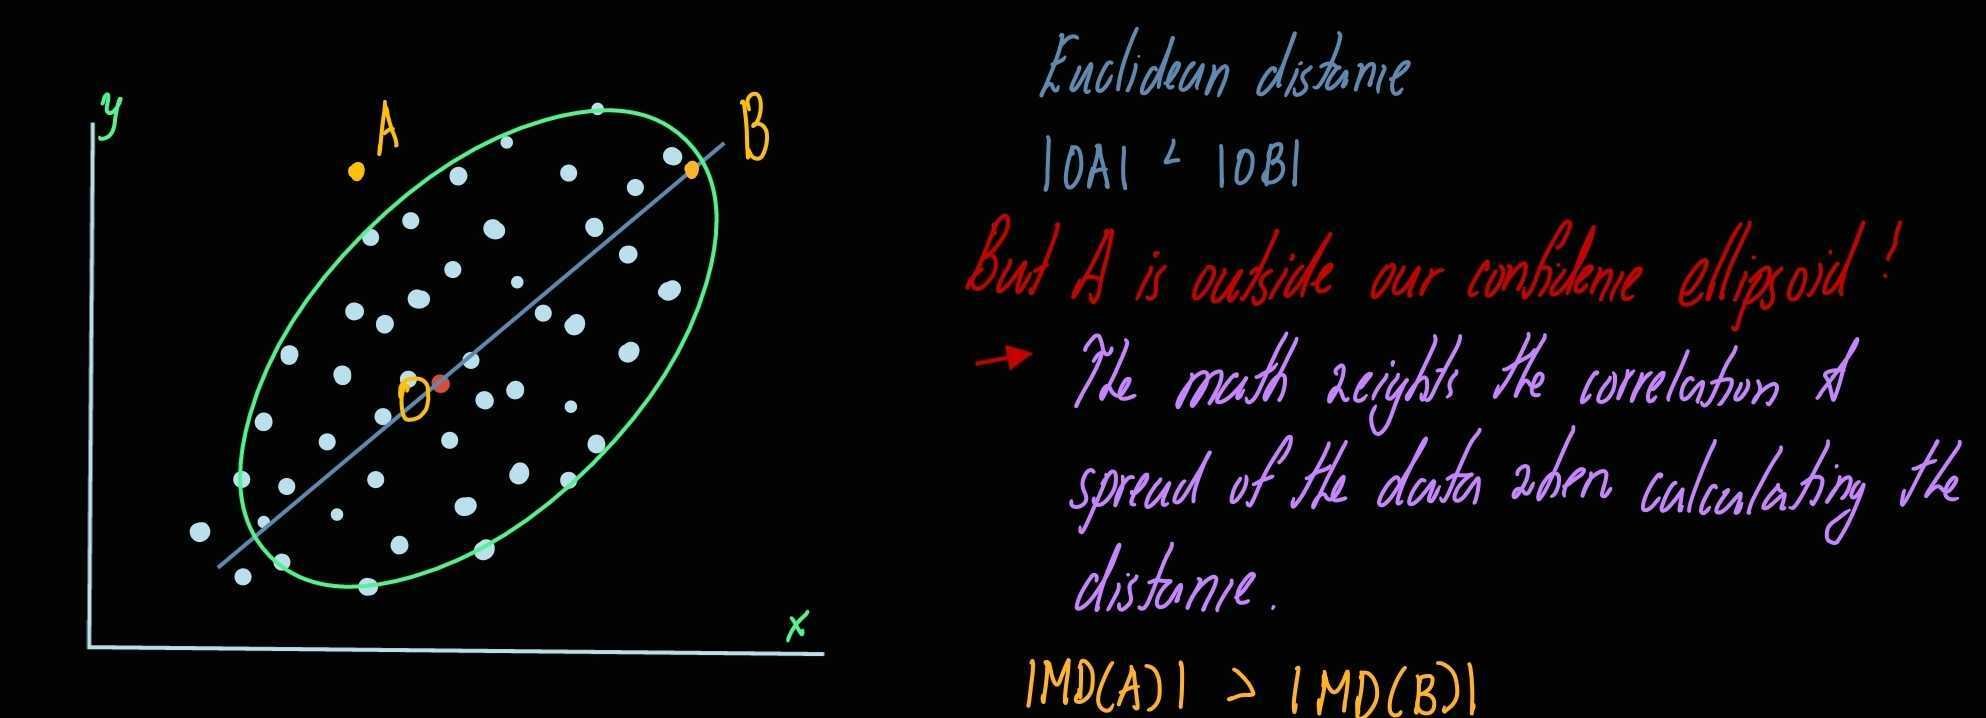 y
A
B
O
x
Euclidean distance
|OA| < |OB|
But A is outside our confidence ellipsoid!
The math weights the correlation &
spread of the data when calculating the
distance.
|MD(A)| > |MD(B)|